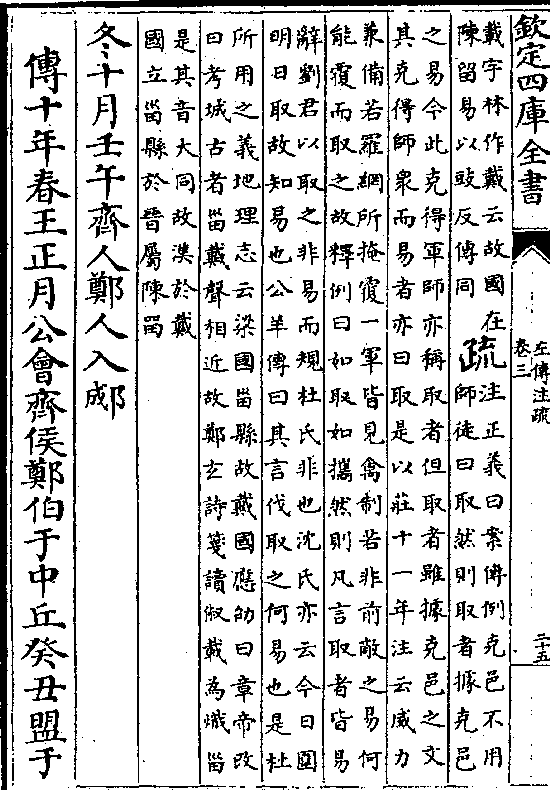 欽定四庫全書
左傳注疏
卷三
二十五
戴字林作戴云故國在
陳留易以豉反傳同
疏
注正義曰案傳例克邑不用
師徒曰取然則取者據克邑
之易今此克得軍師亦稱取者但取者雖據克邑之文
其克得師衆而易者亦曰取是以莊十一年注云威力
兼備若羅網所掩覆一軍皆見禽制若非前敵之易何
能覆而取之故釋例曰如取如攜然則凡言取者皆易
辭劉君以取之非易而規杜氏非也沈氏亦云今日圍
明日取故知易也公羊傳曰其言伐取之何易也是杜
所用之義地理志云梁國甾縣故戴國應劭曰章帝改
曰考城古者甾戴聲相近故鄭玄詩箋讀俶載為熾甾
是其音大同故漢於戴
國立甾縣於晉屬陳留
冬十月壬午齊人鄭人入郕
傳十年春王正月公會齊侯鄭伯于中丘癸丑盟于